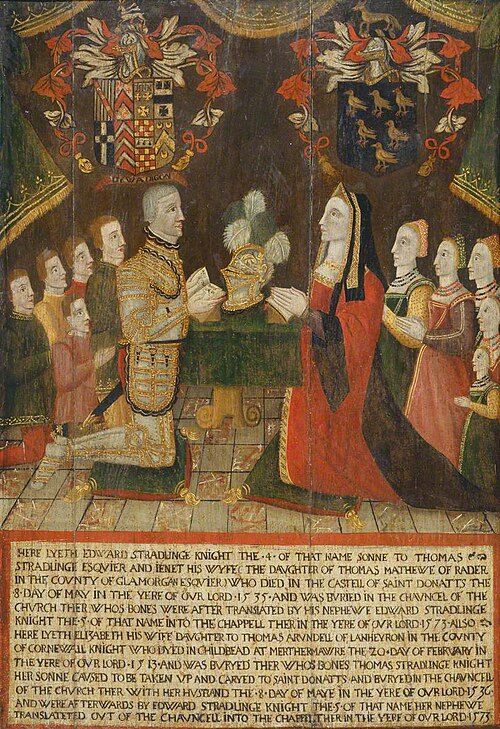 HERE LYETH EDWARD STRADLINGE KNIGHT THE ·4· OF THAT NAME SONNE TO THOMAS
STRADLINGE ESQVIER AND IENET HIS WYFE (THE DAUGHTER OF THOMAS MATHEWE OF RADER
IN THE COVNTY OF GLAMORGAN ESQVIER) WHO DIED IN THE CASTELL OF SAINT DONATTS THE
8·DAY OF MAY IN THE YERE OF OVR LORD·1535·AND WAS BVRIED IN THE CHAVNCEL OF THE
CHVRCH THER WHOS BONES WERE AFTER TRANSLATED BY HIS NEPHEWE EDWARD STRADLINGE
KNIGHT THE·5·OF THAT NAME INTO THE CHAPPELL THER IN THE YERE OF OVR LORD·1573·ALSO
HERE LYETH ELISABETH HIS WIFE DAUGHTER TO THOMAS ARVNDELL OF LANHEYRON IN THE COVNTY
OF CORNEWALL KNIGHT WHO DYED IN CHILDBEAD AT MERTHERMAWRE THE·20·DAY OF FEBRVARY IN
THE YERE OF OVR LORD·1513·AND WAS BVRYED THER WHOS BONES THOMAS STRADLINGE KNIGHT
HER SONNE CAVSED TO BE TAKEN VP AND CARYED TO SAINT DONATTS AND BVRYED IN THE CHAVNCELL
OF THE CHVRCH THER WITH HER HVSBAND THE·8·DAY OF MAYE IN THE YERE OF OVR LORD·1536·
AND WERE AFTERWARDS BY EDWARD STRADLINGE KNIGHT THE 5 OF THAT NAME HER NEPHEWE
TRANSLATETED OVT OF THE CHAVNCELL INTO THE CHAPPEL THER IN THE YERE OF OVR LORD 1573